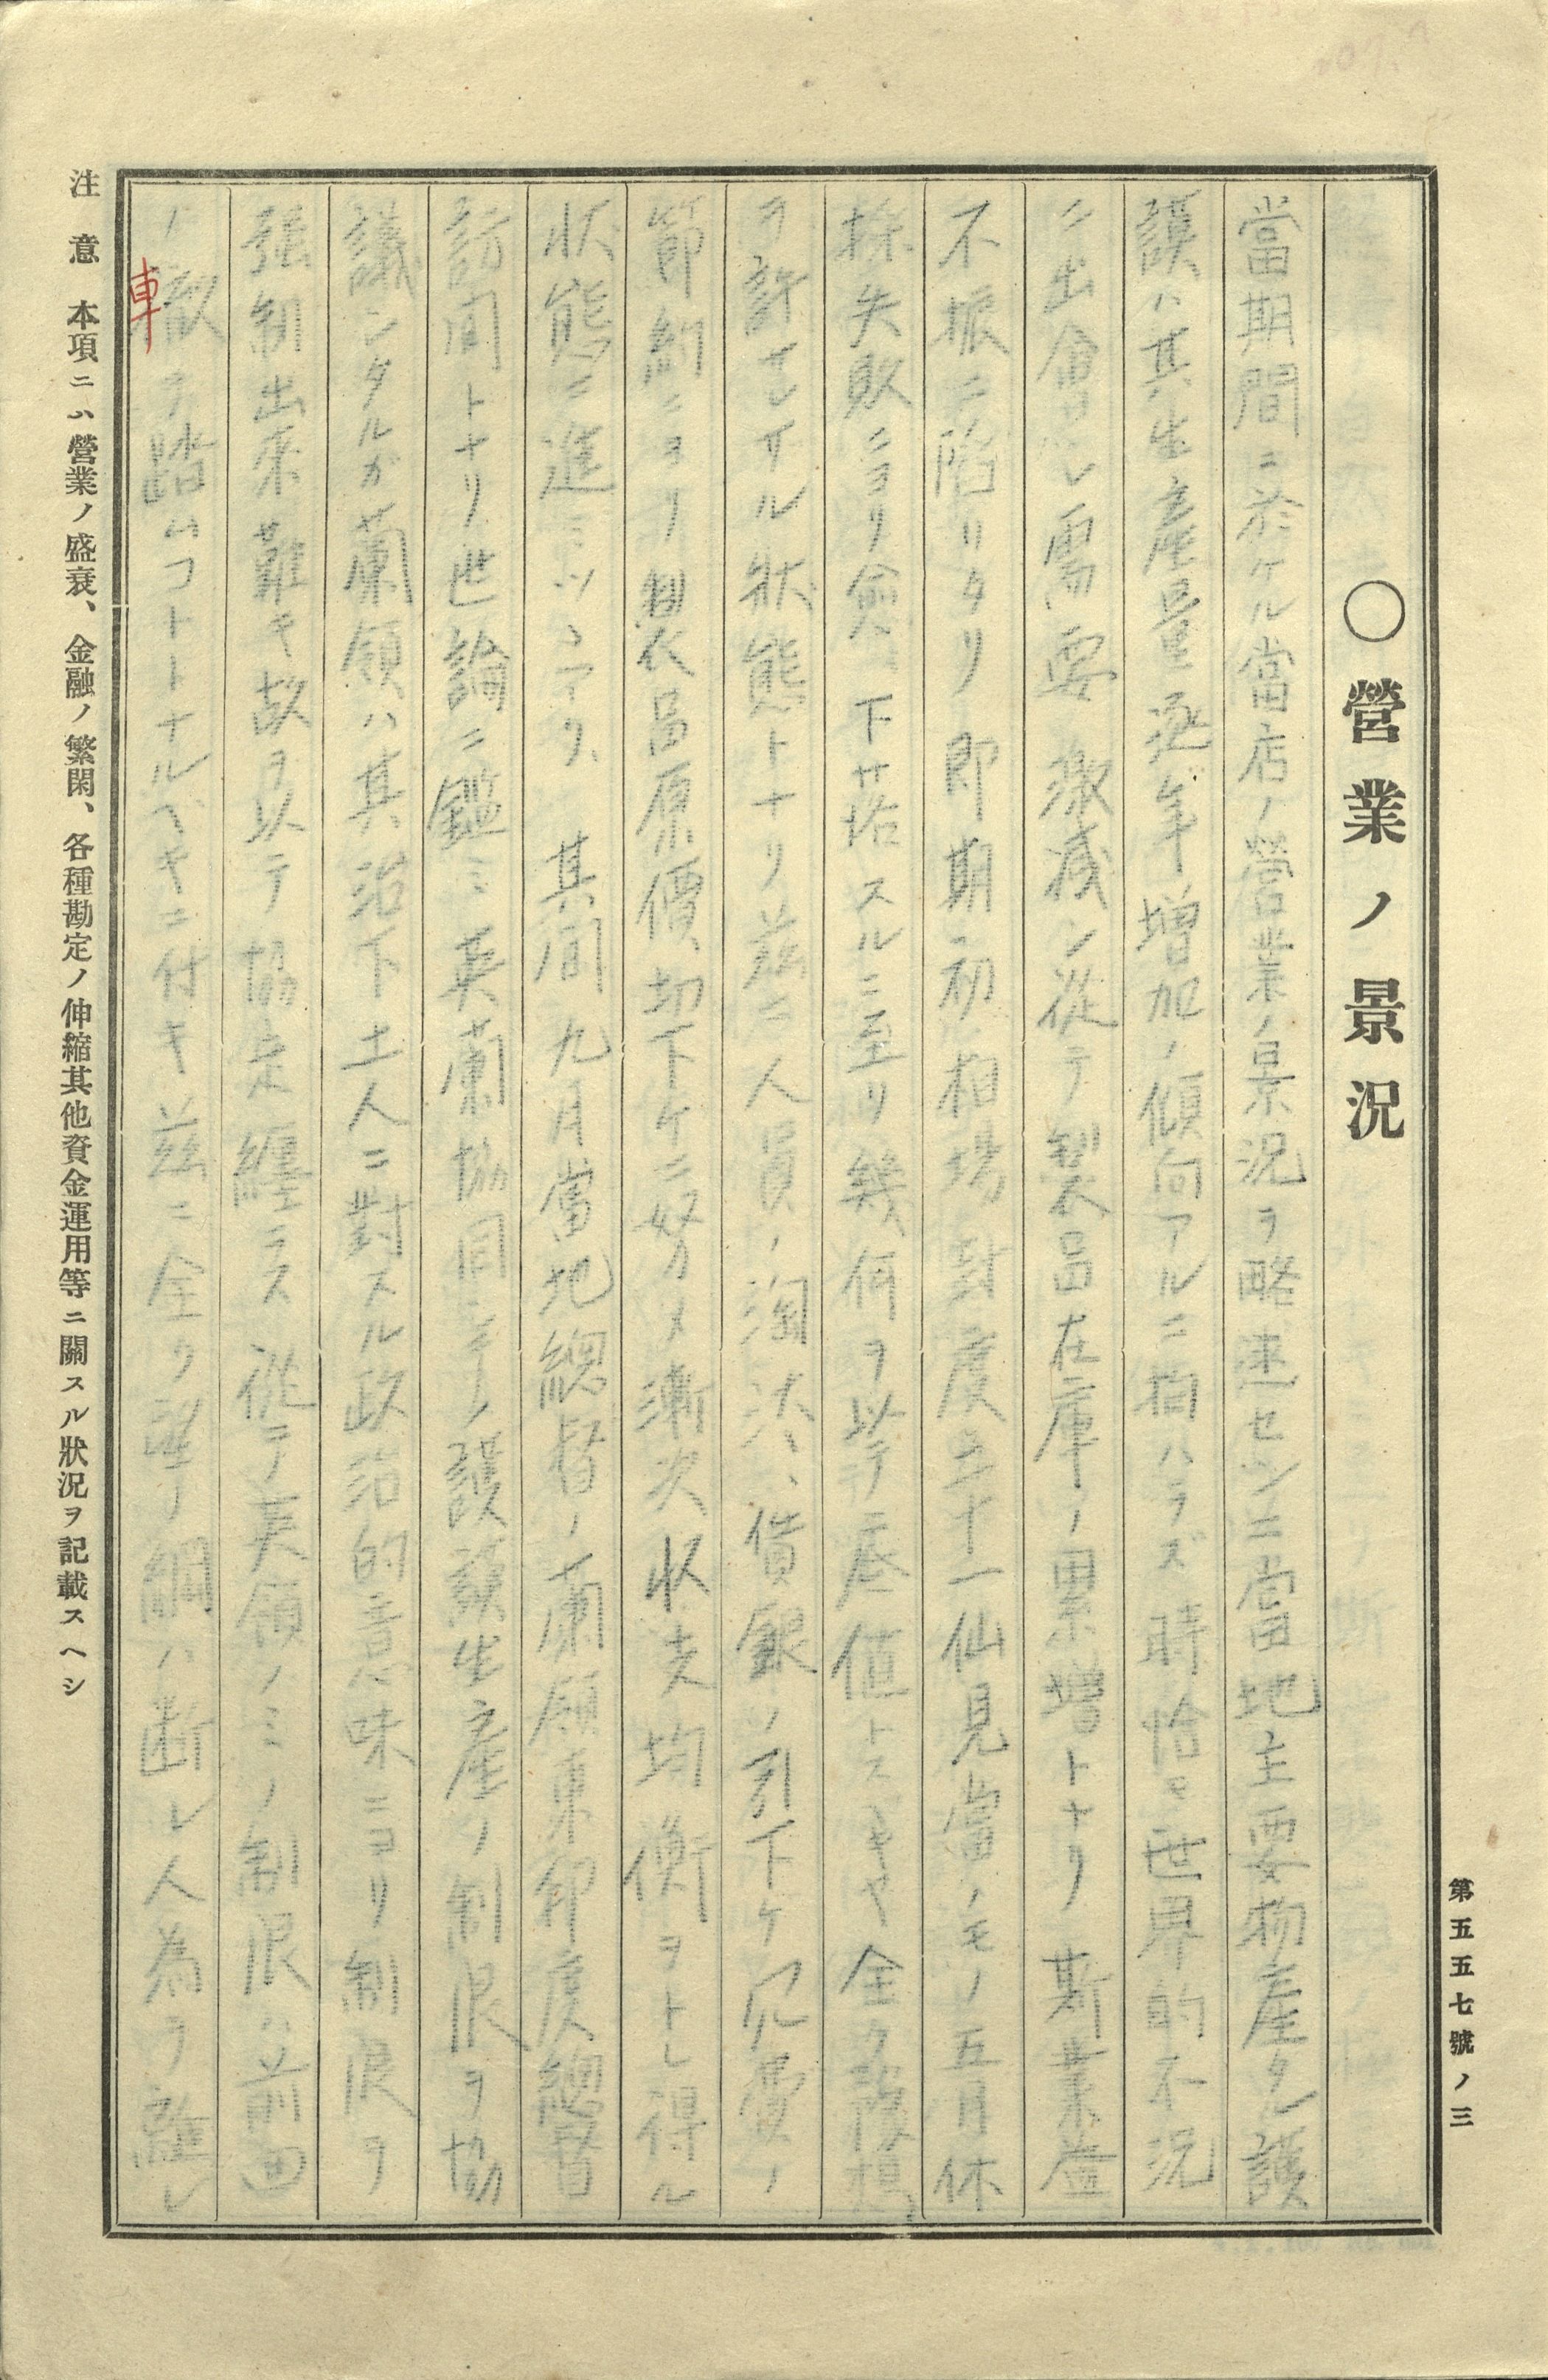 第五五七號ノ三
〇營業ノ景況
當期間ニ於ケル當店ノ營業ノ景況ヲ略述センニ當地主要物産タル護
謨ハ其生産量逐年増加ノ傾向アルニ拘ハラズ時恰モ世界的不況
ニ出會ヒ需要激減シ從テ製品在庫ノ累増トナリ斯業益
不振ニ陷リタリ即期初相場封度二十一仙見當ノモノ五月休
失敗ニヨリ下落スルニ至リ幾何ヲ以テ底値トスベキヤ全ク
ヲ許サレザル状態トナリ茲ニ人員ノ淘汰、賃銀ノ引下ケ冗費ノ
節約ニヨリ製品原價切下ケニ努メ漸次収支均衡ヲトレ得ル
状態ニ進ミツヽアリ、其間九月當地總督ノ蘭領東印度總督
訪問トナリ世論ニ鑑ミ英蘭協同シテノ護謨生産ノ制限ヲ協
議シタルガ蘭領ハ其治下土人ニ對スル政治的意味ニヨリ制限ヲ
強制出來難キ故ヲ以テ協定纏ラス從テ英領ノミノ制限ハ前回
ノ轍ヲ踏ムコトトナルベキニ付キ茲ニ全ク望ノ綱ハ断レ人為ヲ離レ
車
注意 本項ニハ營業ノ盛衰、金融ノ繁閑、各種勘定ノ伸縮其他資金運用等ニ關スル狀況ヲ記載スヘシ